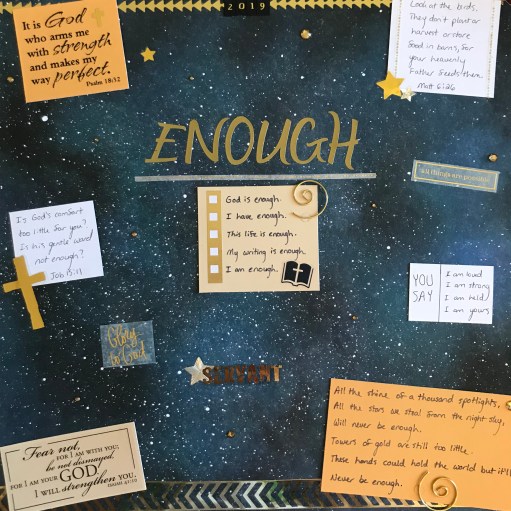 2019
It is God
who arms me
with strength
and makes my
way perfect.
Psalm 18:32
Look at the birds.
They don't plant or
harvest or store
food in barns, for
your heavenly
Father feeds them.
Matt 6:26
ENOUGH
all things are possible
God is enough.
I have enough.
This life is enough.
My writing is enough.
I am enough.
Is God's comfort
too little for you?
Is his gentle word
not enough?
Job 15:11
YOU
SAY
I am loved
I am strong
I am held
I am yours
Glory
to God
SERVANT
All the shine of a thousand spotlights,
All the stars we steal from the night sky,
Will never be enough.
Towers of gold are still too little.
These hands could hold the world but it'll
Never be enough.
Fear not,
FOR I AM WITH YOU;
be not dismayed,
FOR I AM YOUR GOD.
I WILL strengthen YOU.
ISAIAH 41:10